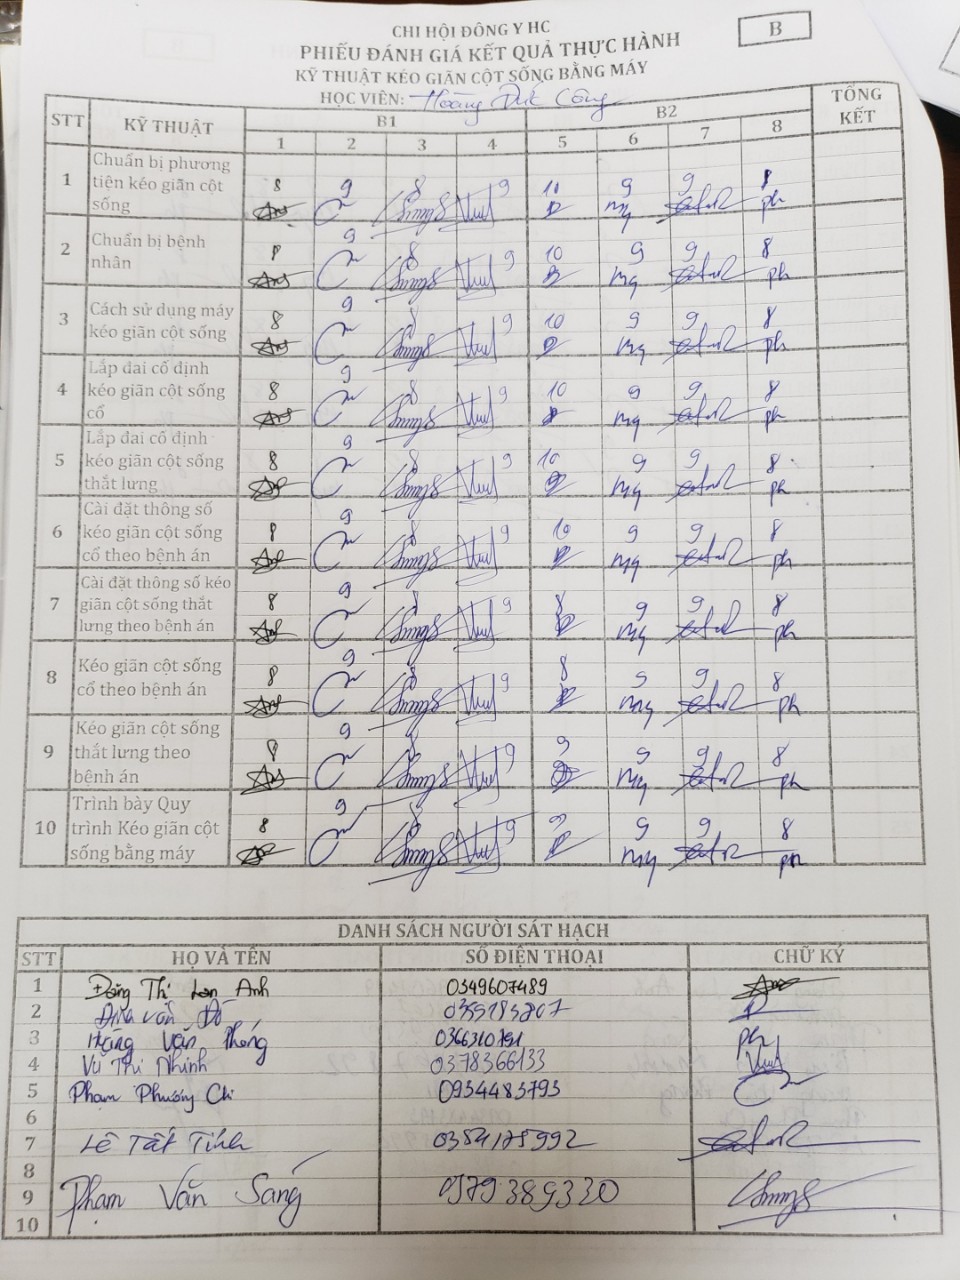 CHI HỘI ĐÔNG Y HC
B
PHIẾU ĐÁNH GIÁ KẾT QUẢ THỰC HÀNH
KỸ THUẬT KÉO GIÃN CỘT SỐNG BẰNG MÁY
HỌC VIÊN: Hoàng Đức Công
STT KỸ THUẬT B1 B2 TỔNG KẾT
1 2 3 4 5 6 7 8
1 Chuẩn bị phương tiện kéo giãn cột sống 8 9 8 9 10 9 9 8
2 Chuẩn bị bệnh nhân 8 9 8 9 10 9 9 8
3 Cách sử dụng máy kéo giãn cột sống 8 9 8 9 10 9 9 8
4 Lắp đai cố định kéo giãn cột sống cổ 8 9 8 9 10 9 9 8
5 Lắp đai cố định kéo giãn cột sống thắt lưng 8 9 8 9 10 9 9 8
6 Cài đặt thông số kéo giãn cột sống cổ theo bệnh án 8 9 8 9 10 9 9 8
7 Cài đặt thông số kéo giãn cột sống thắt lưng theo bệnh án 8 9 8 9 8 9 9 8
8 Kéo giãn cột sống cổ theo bệnh án 8 9 8 9 8 9 9 8
9 Kéo giãn cột sống thắt lưng theo bệnh án 8 9 8 9 9 9 9 8
10 Trình bày Quy trình Kéo giãn cột sống bằng máy 8 9 8 9 9 9 9 8
DANH SÁCH NGƯỜI SÁT HẠCH
STT HỌ VÀ TÊN SỐ ĐIỆN THOẠI CHỮ KÝ
1 Đặng Thị Lan Anh 0349607489
2 Văn
3 Văn Phóng
4 Vũ Thị Nhinh 0378366133
5 Phạm Phương Chi 0934483793
6
7 Lê Tất Tính 0354175992
8
9 Phạm Văn Sáng 0379389330
10